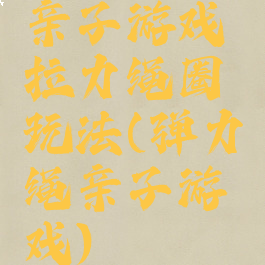 亲子游戏
拉力绳圈
玩法(弹力
绳亲子游
戏)